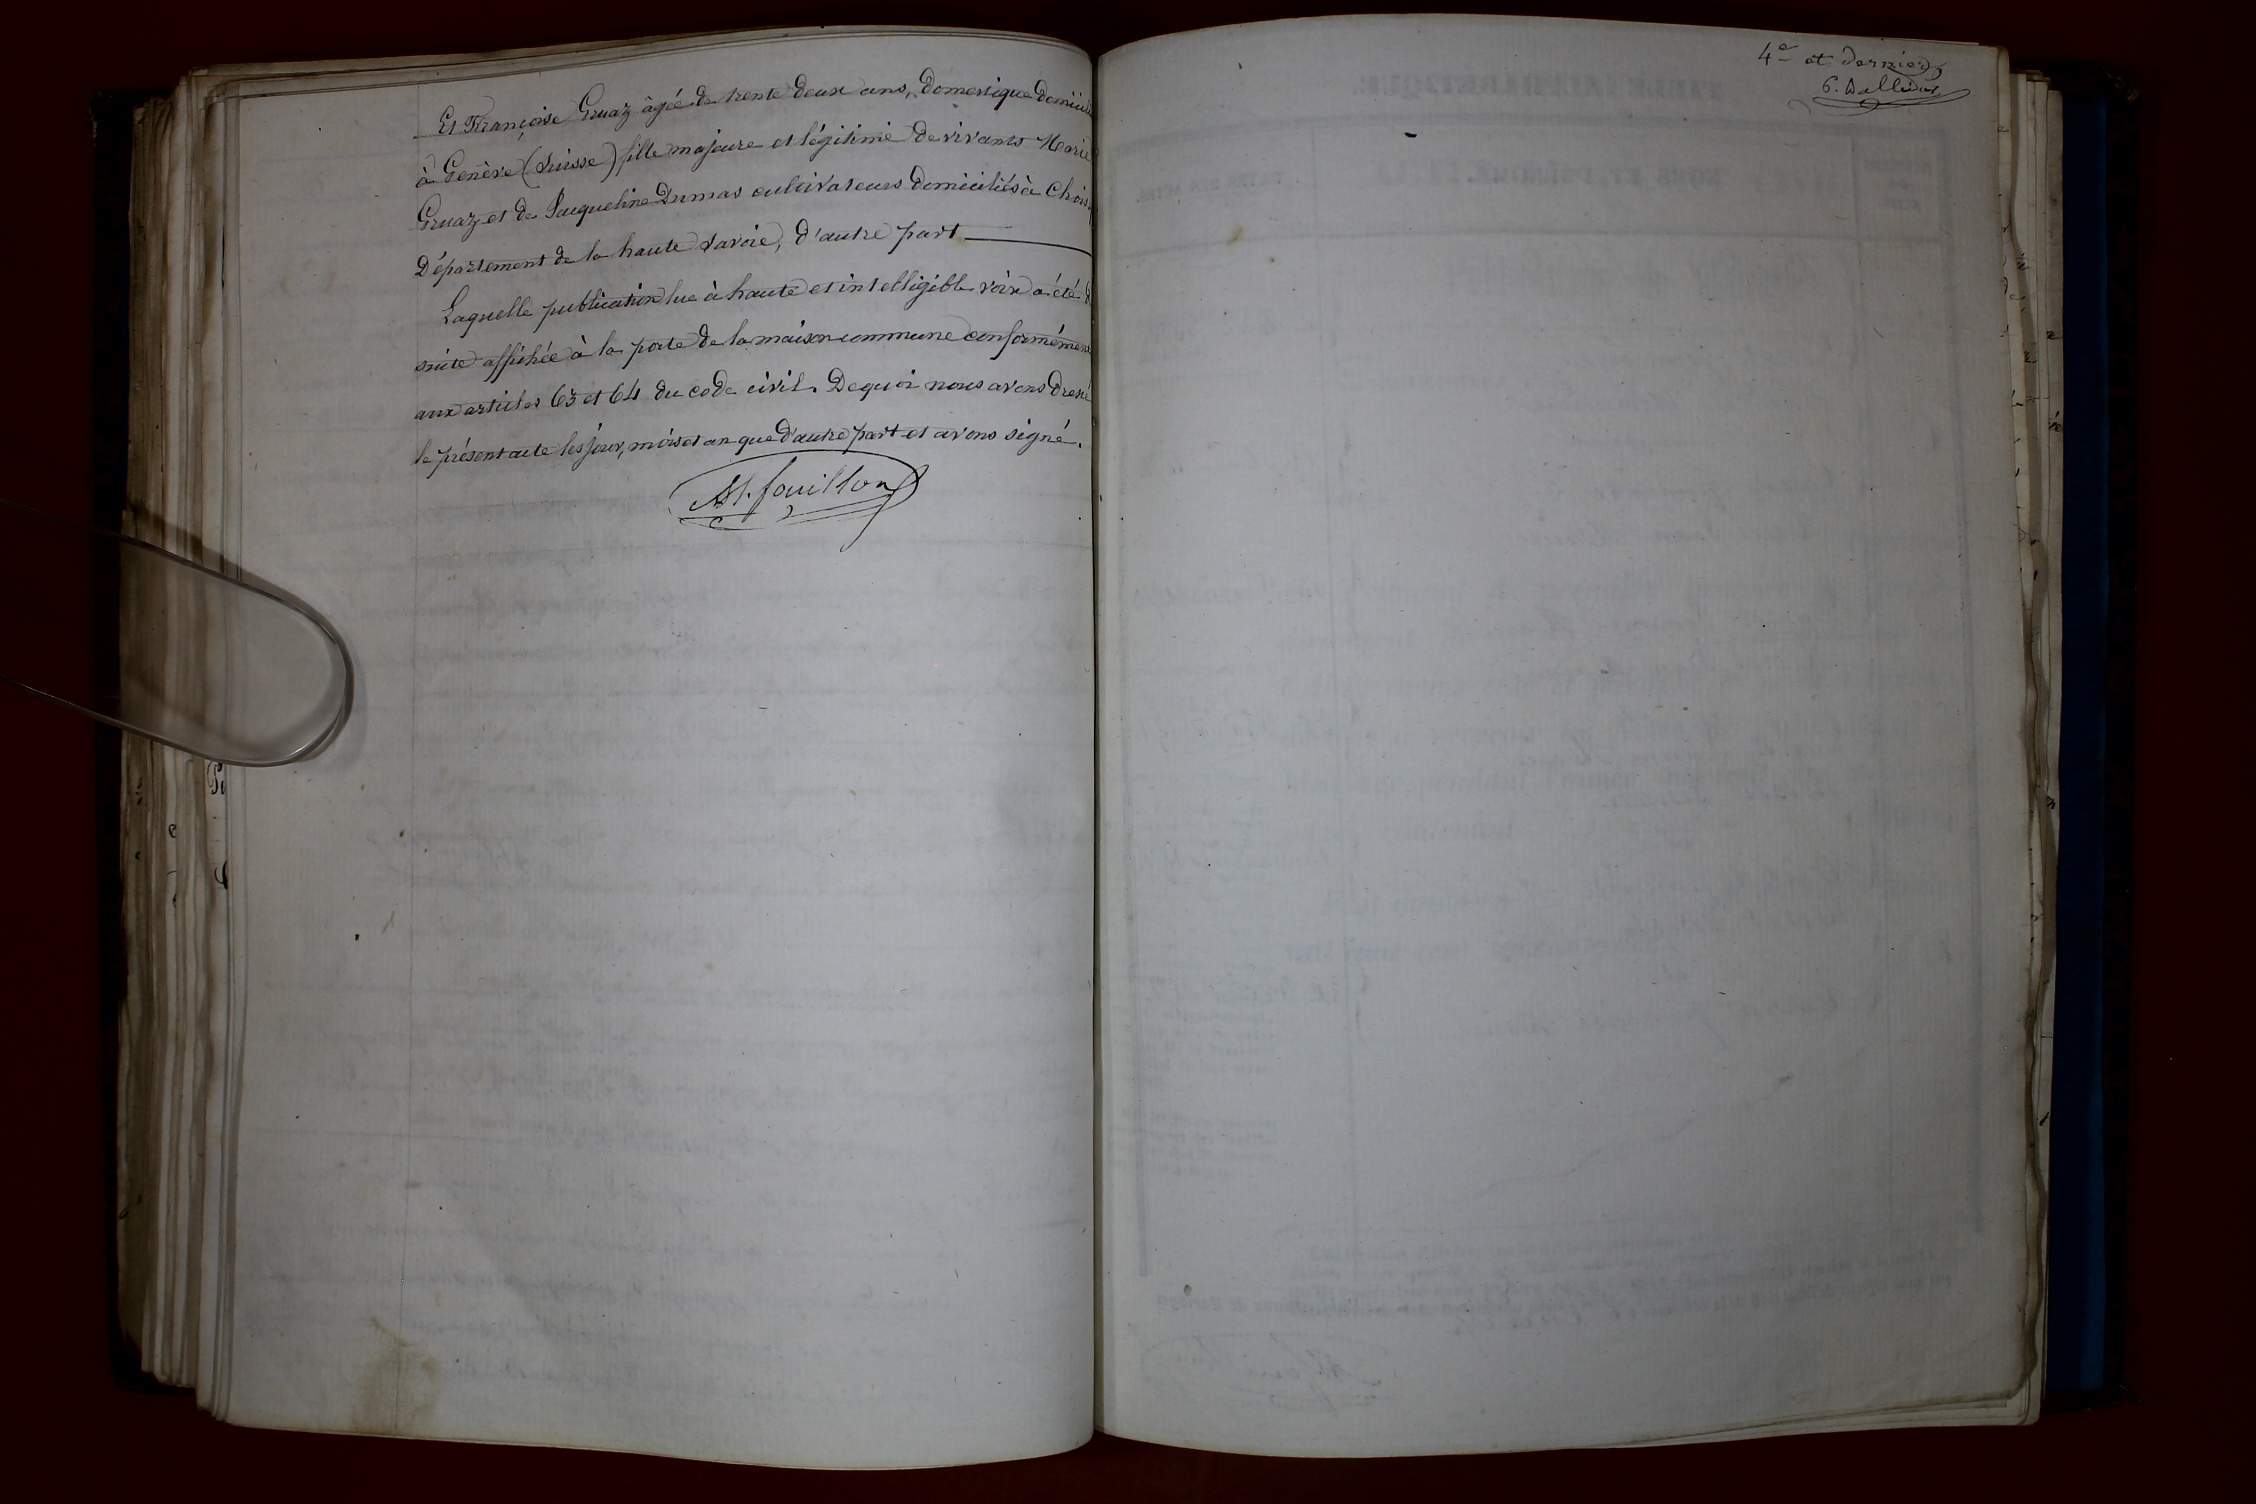 Et Françoise Gruaz âgée de trente deux ans, domestique domicili
à Genève (Suisse) fille majeure et légitime de vivants Marie
Gruaz et de Jacqueline Dumas cultivateurs domiciliés à Choisy
Département de la haute Savoie, d'autre part
Laquelle publication lue à haute et intelligible voix a été
suite affichée à la porte de la maison commune conformément
aux articles 63 et 64 du code civil. De quoi nous avons dressé
le présent acte les jour, mois et an que d'autre part et avons signé.
fouillon
4e et dernier